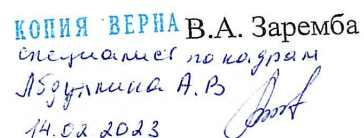 КОПИЯ ВЕРНА В.А. Заремба
специалист по кадрам
Абдуллина А.В
14.02 2023